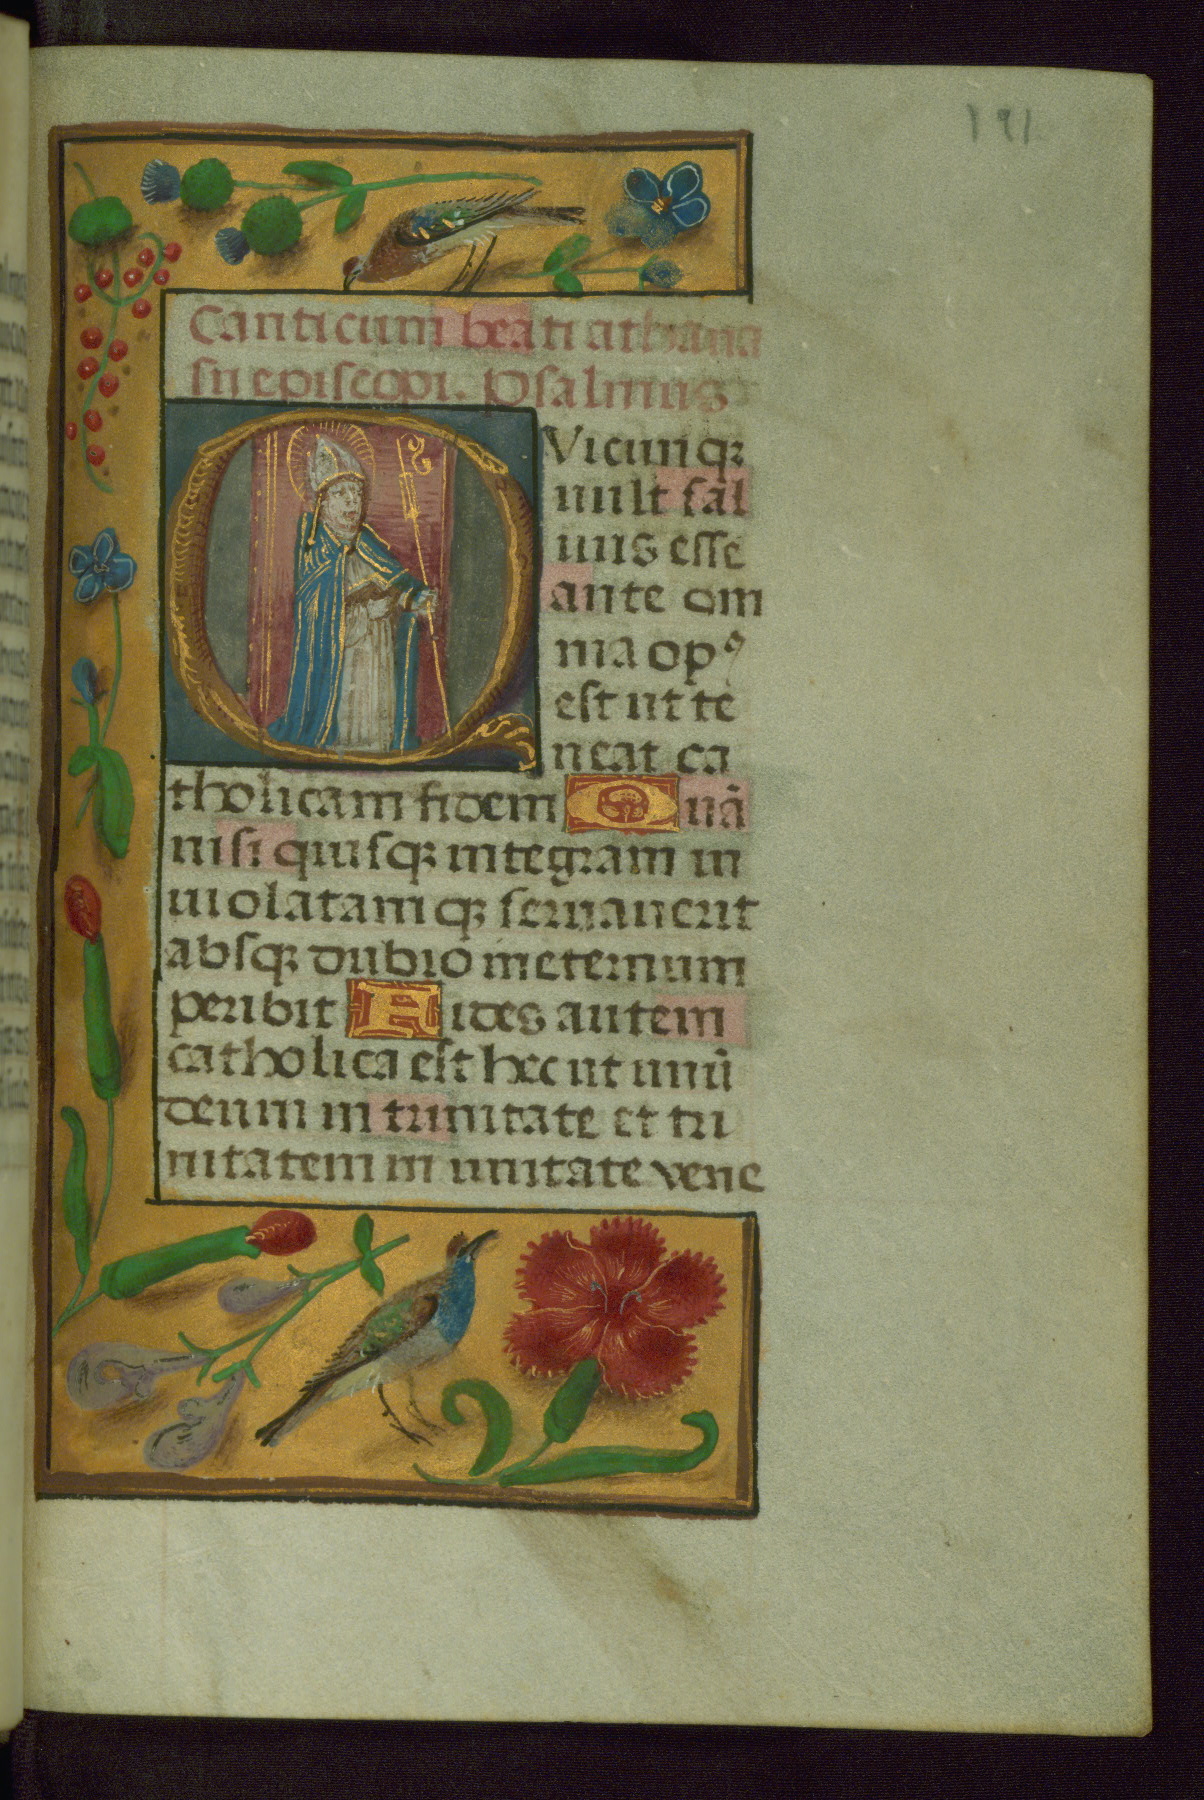 191
Canticum beati athana
sii episcopi. Psalmus
QVicunqꝫ
uult sal
uus esse
ante om
nia opꝰ
est ut te
neat ca
tholicam fidem Quā
nisi quisqꝫ integram in
uiolatamqꝫ seruauerit
absqꝫ dubio in eternum
peribit Fides autem
catholica est hec ut unū
deum in trinitate et tri
nitatem in unitate vene